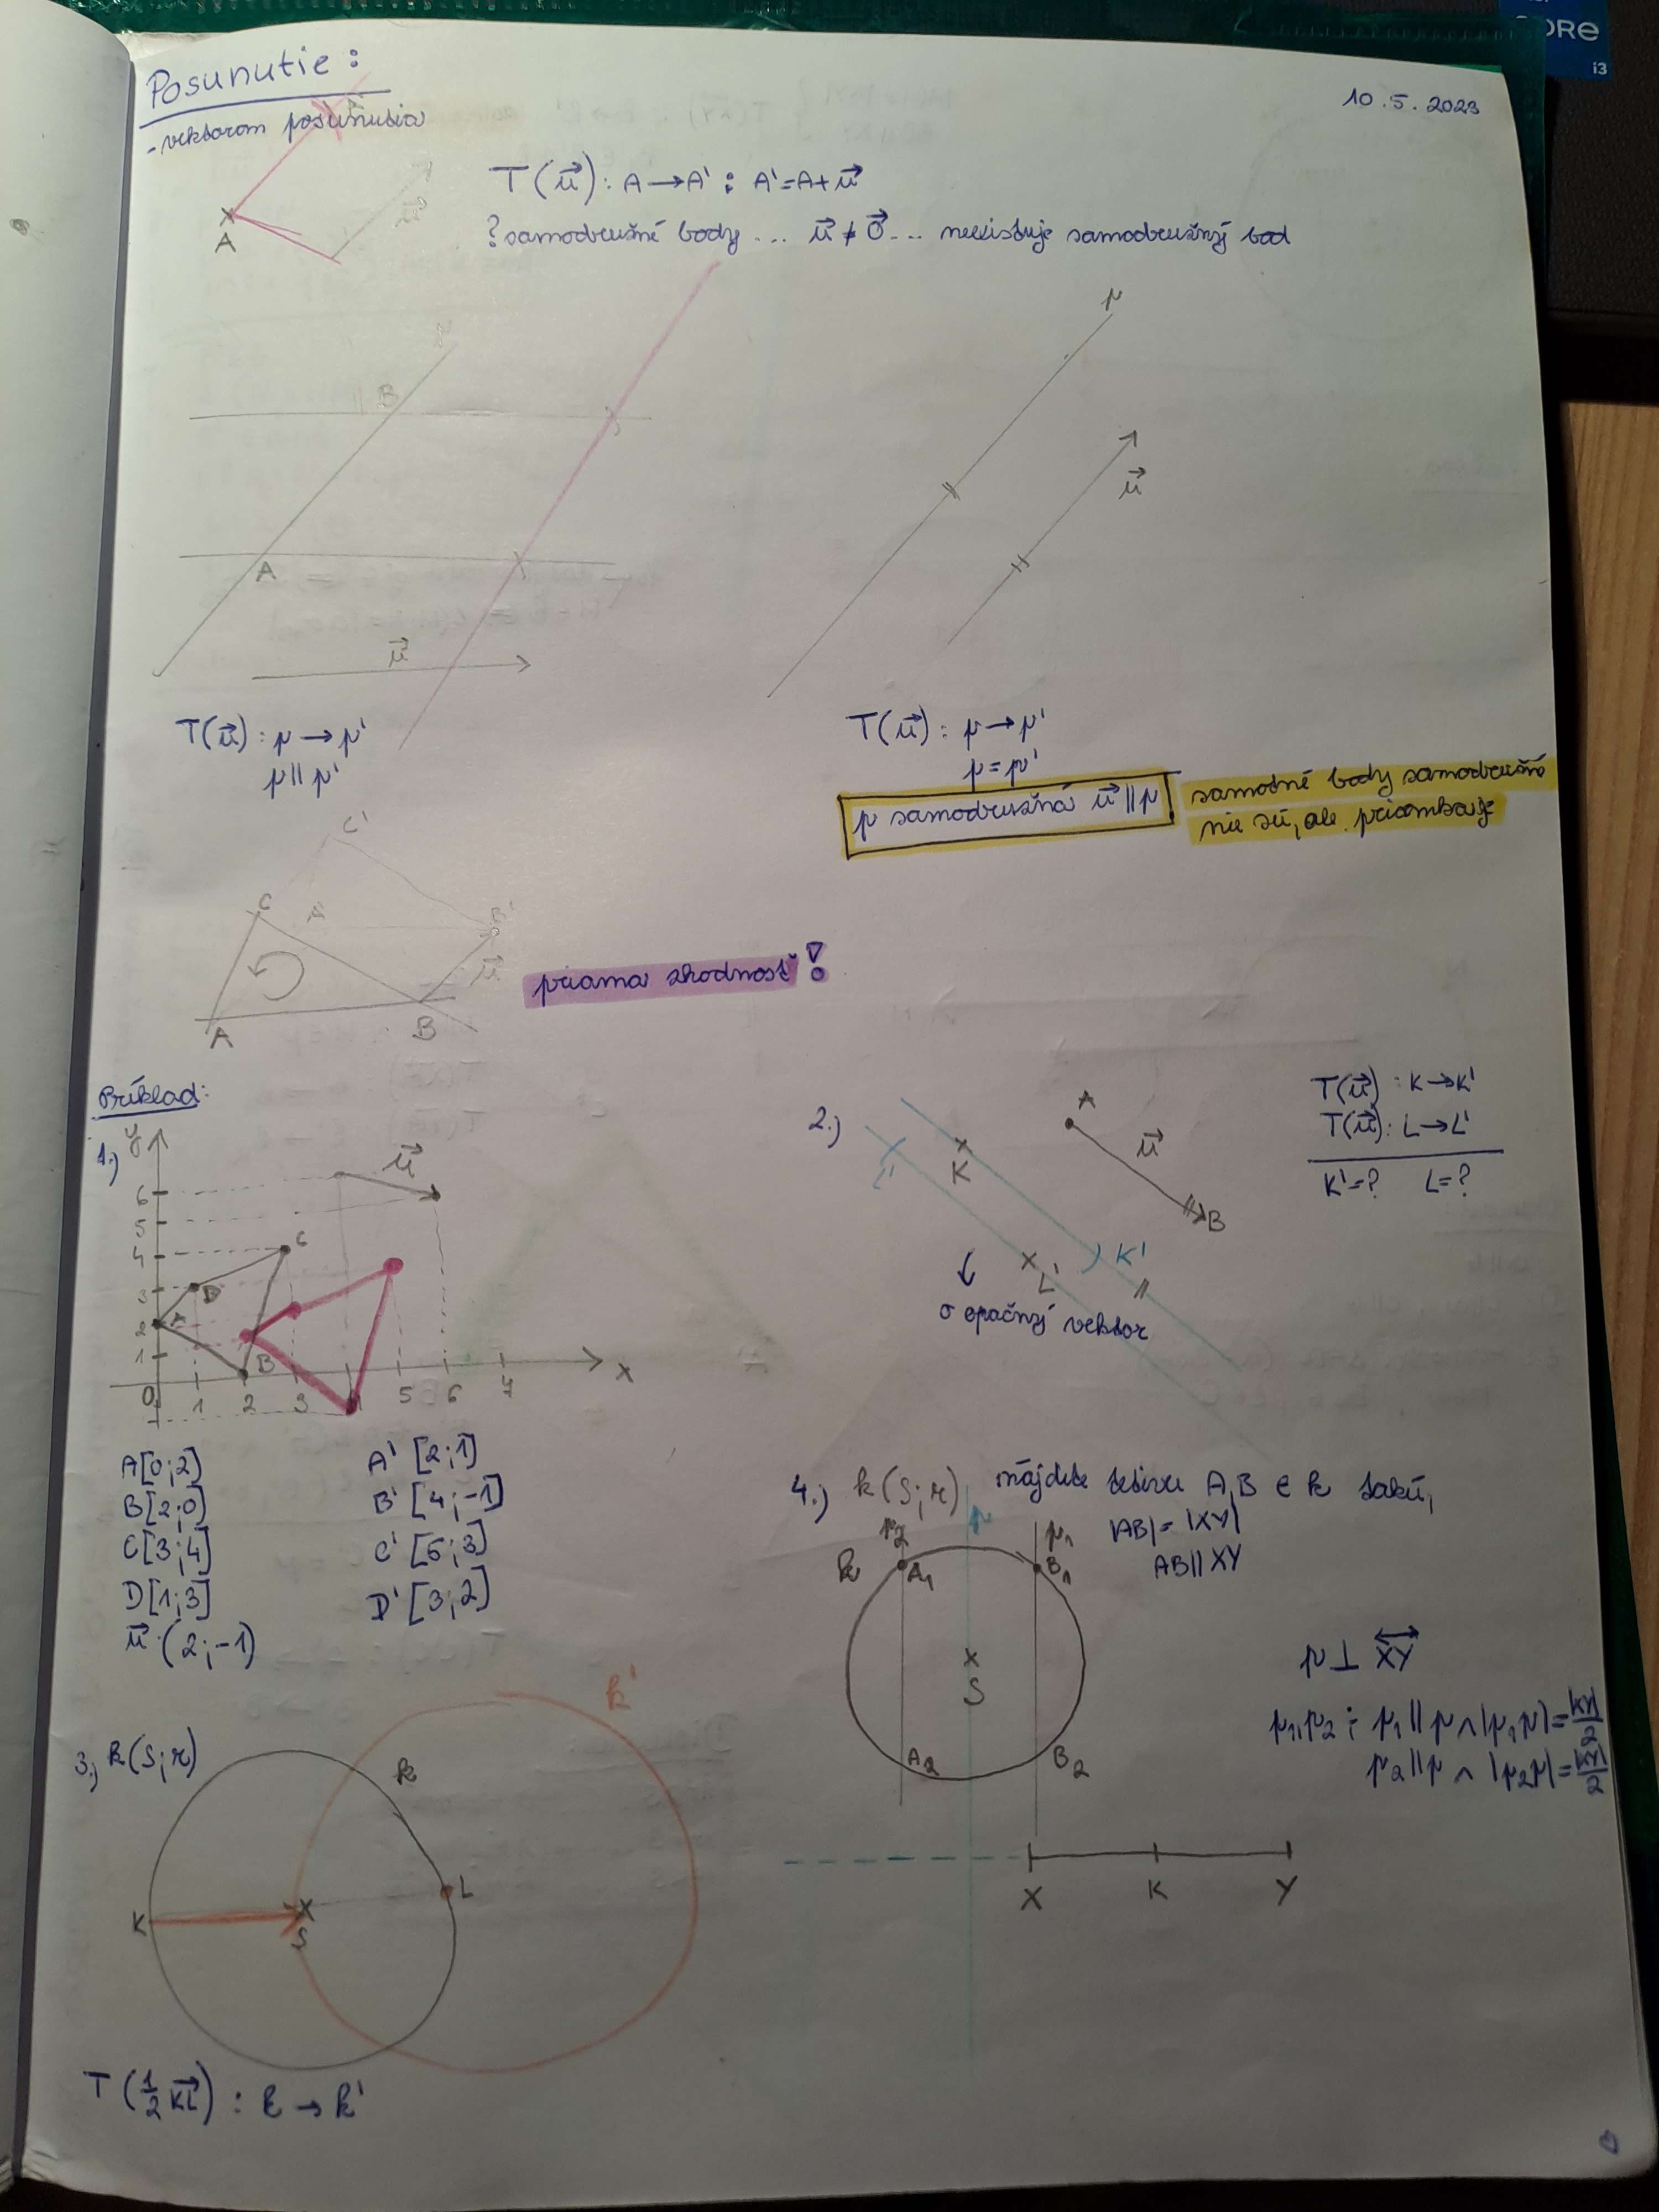 CORE
i3
10.5.2023
Posunutie:
-vektorom posunutia
A
u
T(u): A→A' : A'=A+u
? samodružné body ... u ≠ 0 ... neexistuje samodružný bod
B
A
u
T(u): p→p'
p || p'
p
u
T(u): p→p'
p=p'
p samodružná u || p
samotné body samodružné
nie sú, ale priamka je
C'
C
A'
B'
u
A
B
priama zhodnosť!
Príklad:
1.)
y
u
6
5
4
3
2
1
0
C
D
A
B
1 2 3 4 5 6 7
x
A[0;2]
B[2;0]
C[3;4]
D[1;3]
u (2;-1)
A' [2;1]
B' [4;-1]
C' [5;3]
D' [3;2]
2.)
A
u
B
K
L'
K'
L'
↓
o opačný vektor
T(u): K→K'
T(u): L→L'
K'=? L=?
3.) k(S;r)
k
k'
K
S
L
T(1/2 KL): k→k'
4.) k(S;r) nájdite tetivu A,B ∈ k takú,
|AB|=|XY|
AB || XY
p2
p
p1
k
A1
B1
S
A2
B2
X
K
Y
p ⊥ XY
p1,p2 : p1 || p ∧ |p1p|=|XY|/2
p2 || p ∧ |p2p|=|XY|/2